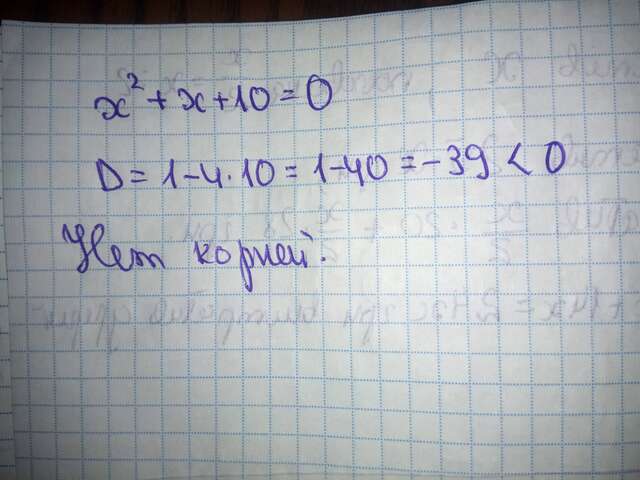 x² + x + 10 = 0
D = 1 - 4 · 10 = 1 - 40 = -39 < 0
Нет корней.